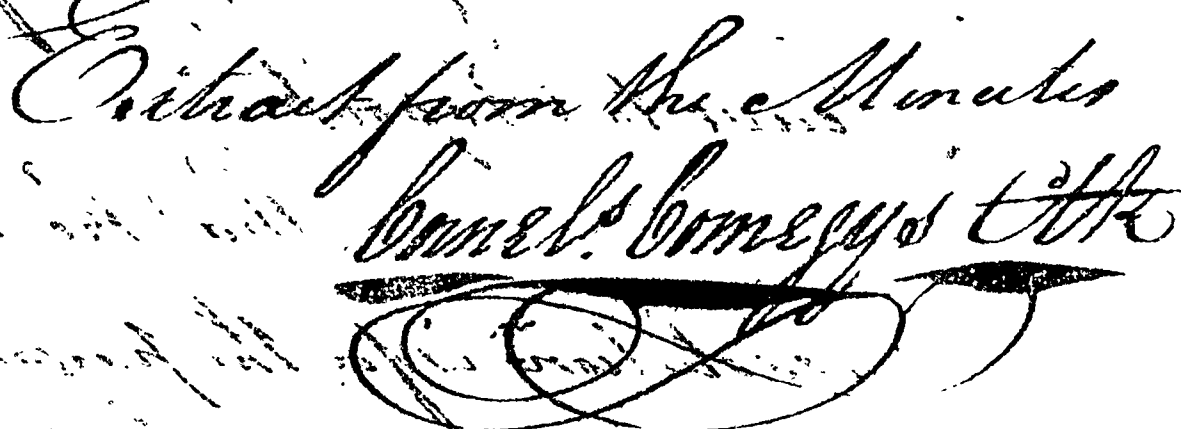 Extract from the Minutes
Cornels. Comegys Clk